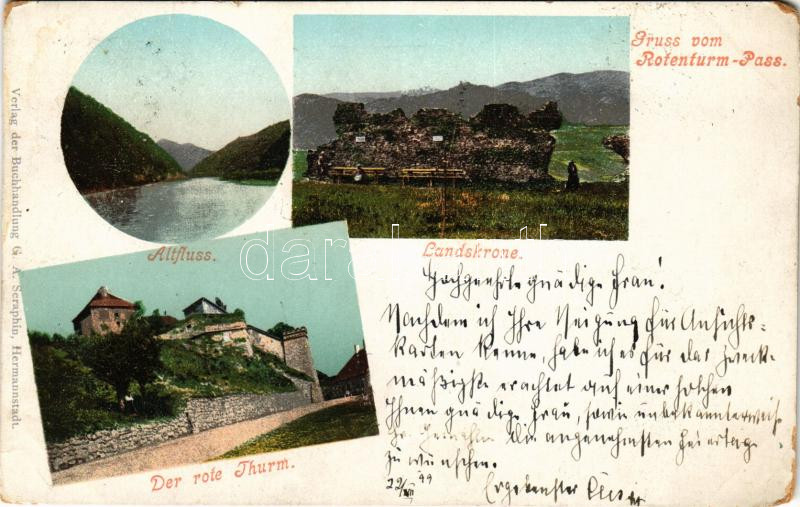 Gruss vom
Rotenturm-Pass.
Verlag der Buchhandlung G. A. Seraphin, Hermannstadt.
Altfluss.
Landskrone.
Der rote Thurm.
darabanth
Hochgeehrte gnädige Frau!
Nachdem ich Ihre Neigung für Ansichts-
karten kenne, habe ich es für das Zweck-
mäßigste erachtet auf einer solchen
Ihnen gnädige Frau, sowie unbekannterweise
die angenehmsten Feiertage
zu wünschen.
22/XII 99
Ergebenster